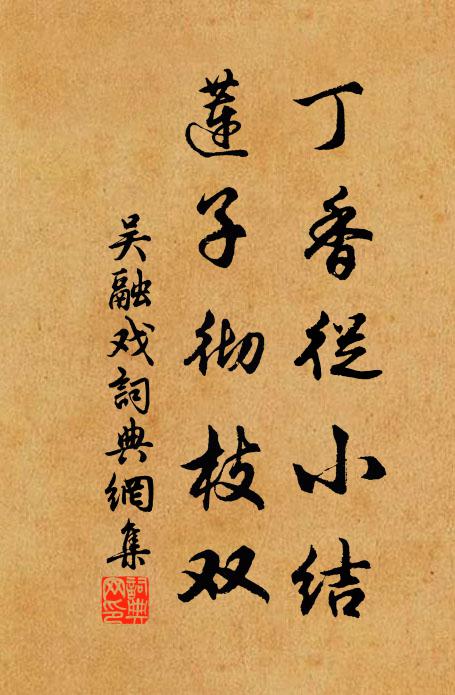 丁香從小结
蓮子彻枝双
吴融戏詞典網集
詞典网印